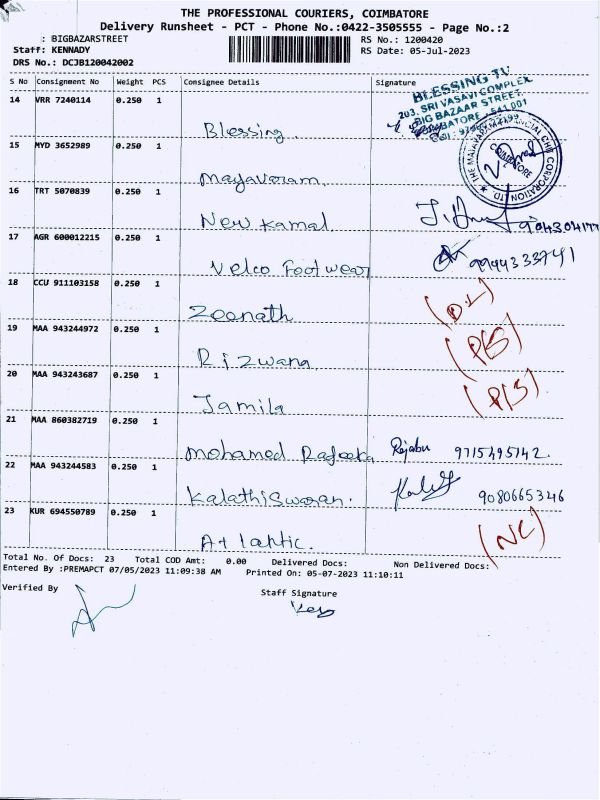 THE PROFESSIONAL COURIERS, COIMBATORE
Delivery Runsheet - PCT - Phone No.:0422-3505555 - Page No.:2
: BIGBAZARSTREET
RS No.: 1200420
Staff: KENNADY
RS Date: 05-Jul-2023
DRS No.: DCJB120042002
S No Consignment No Weight PCS Consignee Details Signature
14 VRR 7240114 0.250 1
Blessing.
BLESSING TV
203, SRI VASAVI COMPLEX
BIG BAZAAR STREET,
COIMBATORE - 641 001
15 MYD 3652989 0.250 1
Mayavaram.
COIMBATORE
16 TRT 5070839 0.250 1
New Kamal
17 AGR 600012215 0.250 1
Velco Footwear
9994333741
18 CCU 911103158 0.250 1
Zeenath
(D.L)
19 MAA 943244972 0.250 1
Rizwana
20 MAA 943243687 0.250 1
Jamila
21 MAA 860382719 0.250 1
Mohamed Rafeeka
Rajabu 9715495142.
22 MAA 943244583 0.250 1
Kalathiswaran.
9080665346
23 KUR 694550789 0.250 1
Atlantic.
(NC)
Total No. Of Docs: 23 Total COD Amt: 0.00 Delivered Docs: Non Delivered Docs:
Entered By :PREMAPCT 07/05/2023 11:09:38 AM Printed On: 05-07-2023 11:10:11
Verified By
Staff Signature